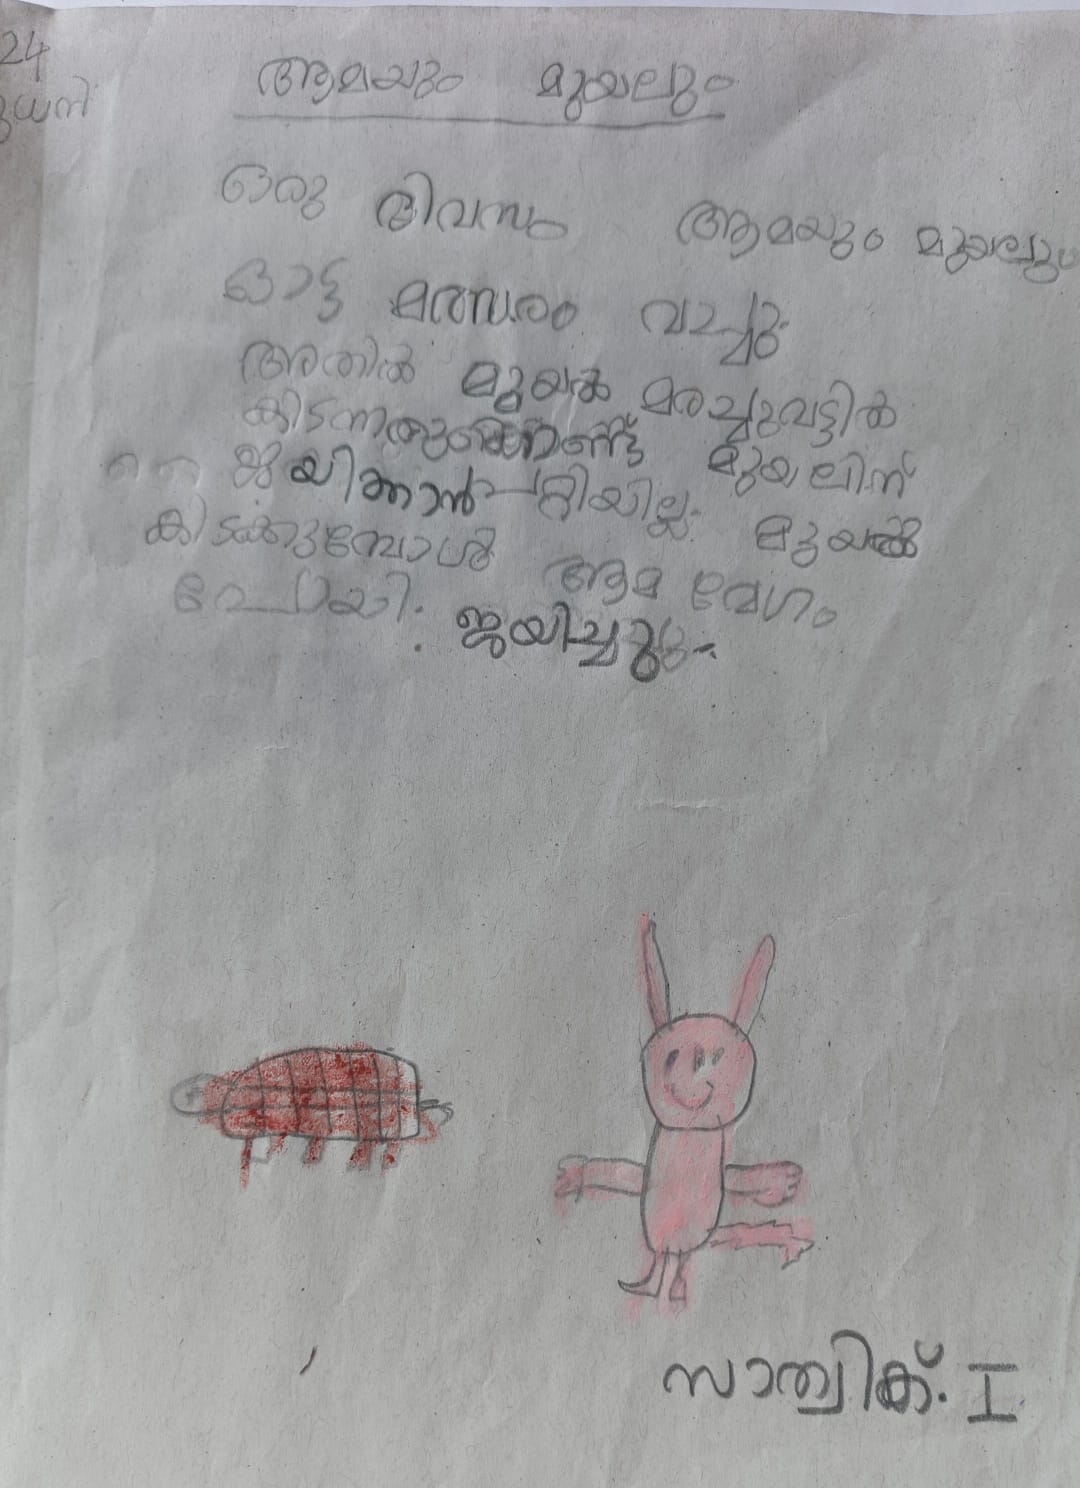 24
ആമയും മുയലും
ഒരു ദിവസം ആമയും മുയലും
ഓട്ട മത്സരം വച്ചു.
അതിൽ മുയൽ മരച്ചുവട്ടിൽ
കിടന്നതുകൊണ്ട് മുയലിന്
ജയിക്കാൻ പറ്റിയില്ല. മുയൽ
കിടക്കുമ്പോൾ ആമ വേഗം
പോയി. ജയിച്ചു.
സാത്വിക്. I